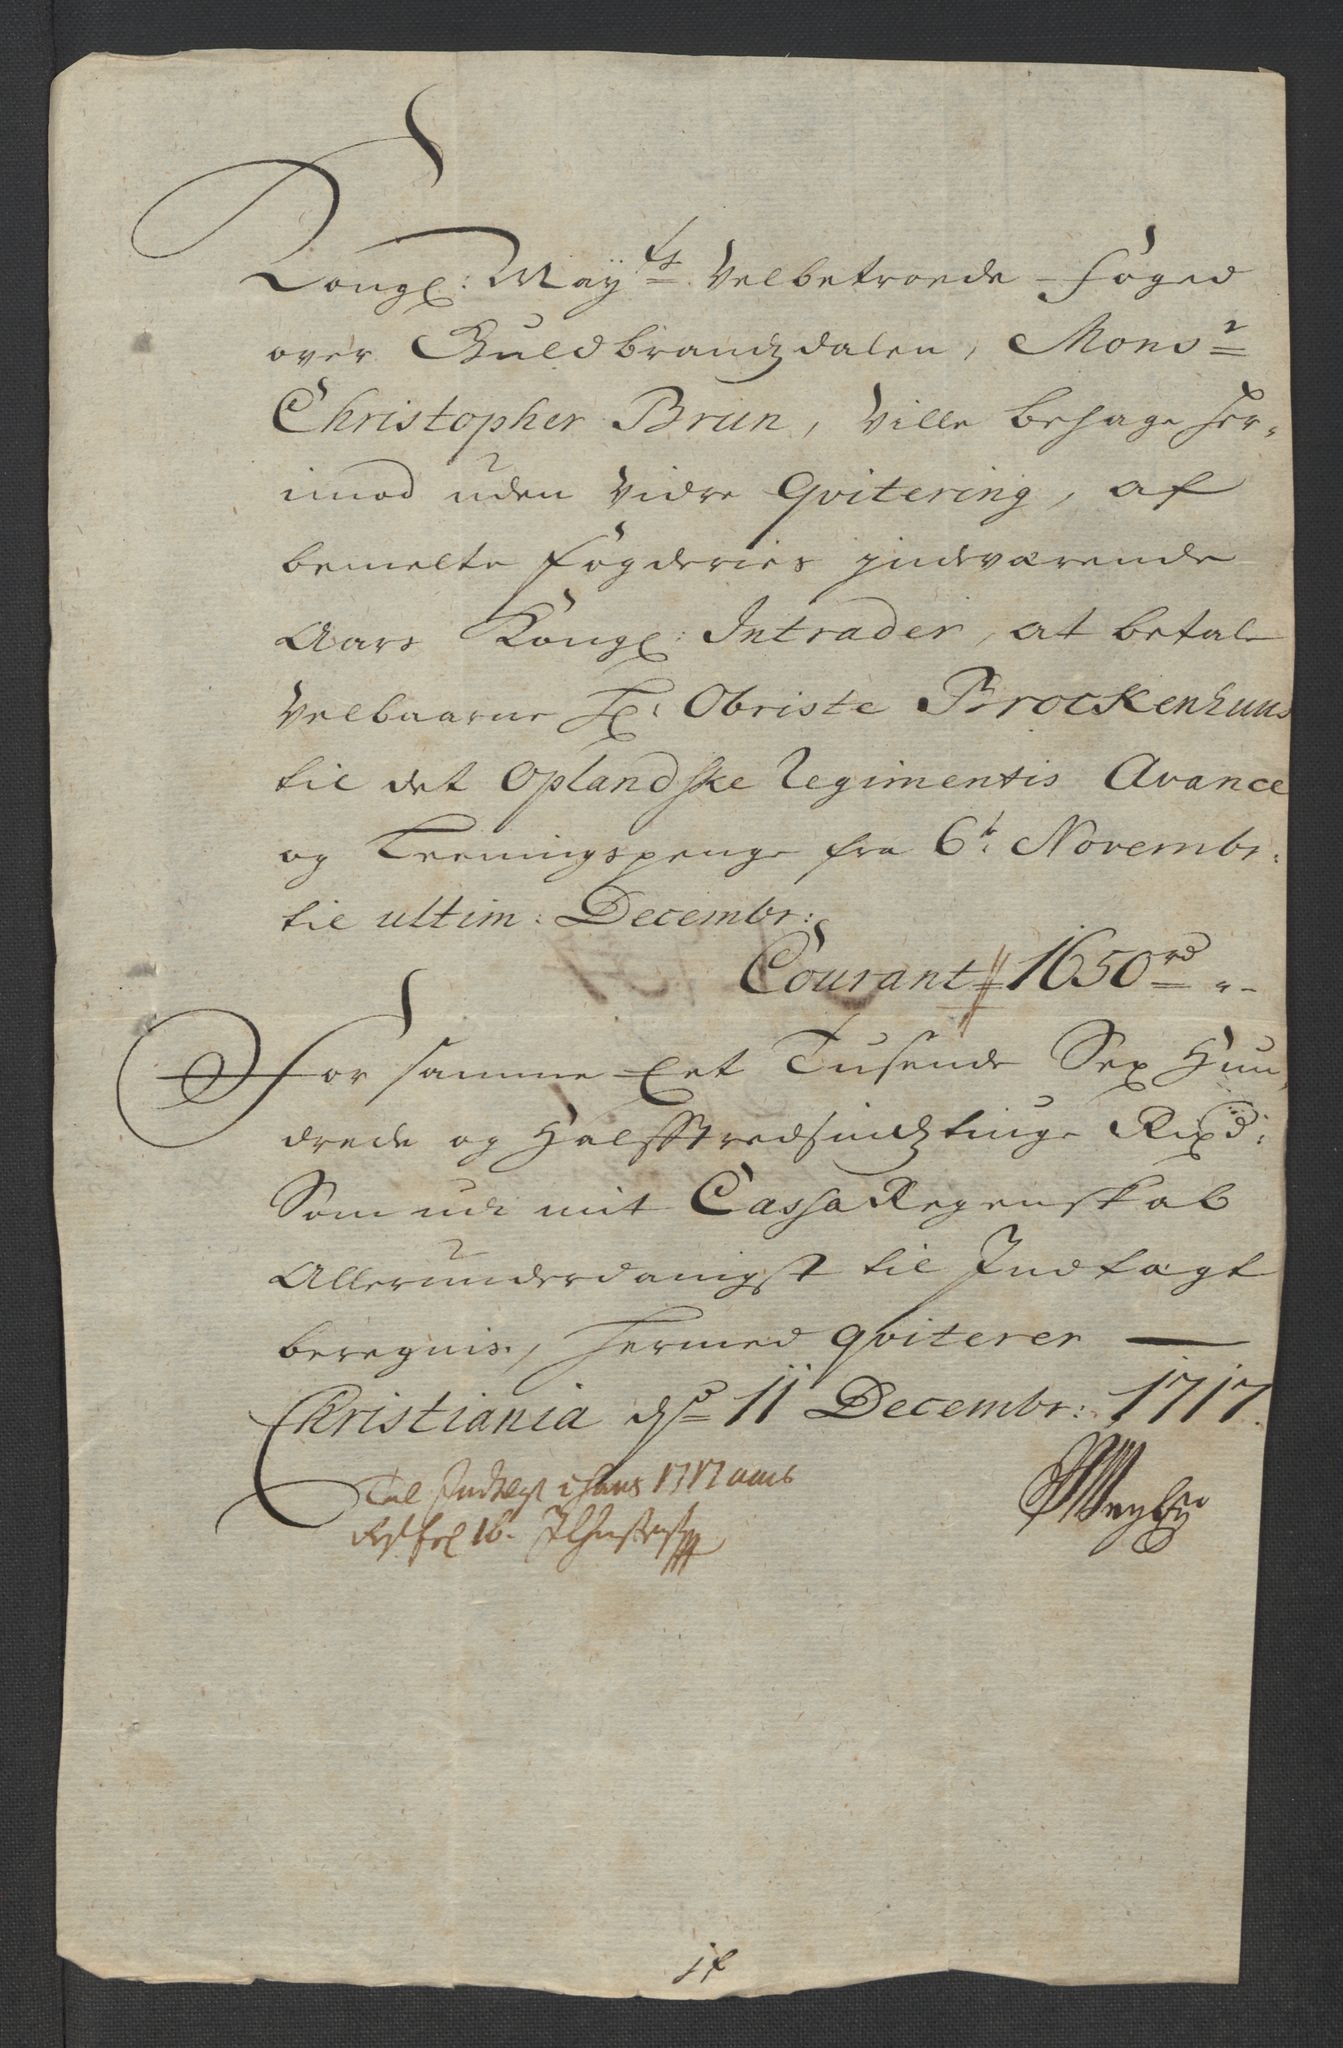 Kongl: Mayts Velbetroede Foged
over Guldbrandzdalen, Monsr
Christopher Brun, Ville behage her-
imod uden Vidre Qvitering, af
bemelte Fogderies jndeværende
Aars Kongl: Intrader, at betale
Velbaarne Hr: Obriste Brockenhuus
til det Oplandske Regimentis Avance
og Teeringspenge fra 6t Novembr:
til ultim: Decembr:
Courant 1650 rd
For samme Eet Tusende Sex Hun-
drede og Halfftredsindztiuge Rixd:
Som udi mit Cassa Regenskab
Allerunderdanigst til Indtægt
beregnis, hermed qviterer
Christiania dsn 11 Decembr: 1717.
Til Indtægt i hans 1717 aars
fol 16.